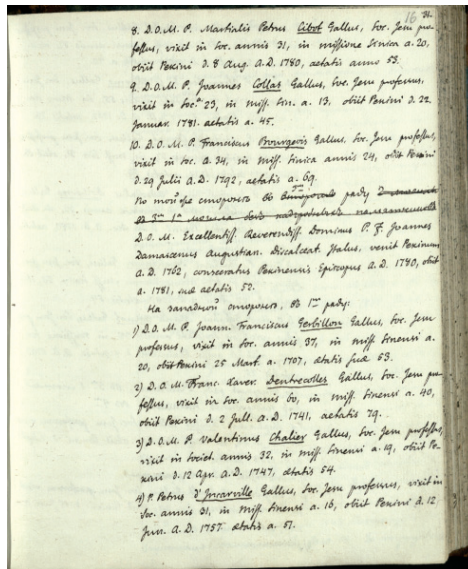 16 31.
8. D.O.M. P. Martialis Petrus Cibot Gallus, Soc. Jesu pro-
fessus, vixit in Soc. annis 31, in missione Sinica a. 20,
obiit Pekini d. 8 Aug. A.D. 1780, aetatis anno 53.
9. D.O.M. P. Joannes Collas Gallus, Soc. Jesu professus,
vixit in Soc. a. 23, in miss. Sin. a. 13, obiit Pekini d. 22
Januar. 1781. aetatis a. 45.
10. D.O.M. P. Franciscus Bourgeois Gallus, Soc. Jesu professus,
vixit in Soc. a. 34, in miss. Sinica annis 24, obiit Pekini
d. 29 Julii A.D. 1792, aetatis a. 69.
По той же стороне въ ряду
D.O.M. Excellentiss. Reverendiss. Dominus P. F. Joannes
Damascenus Augustian. Discalceat. Italus, venit Pekinum
A.D. 1762, consecratus Pekinensis Episcopus A.D. 1780, obiit
a. 1781, suae aetatis 52.
На западной стороне, въ 1мъ ряду:
1) D.O.M. P. Joann. Franciscus Gerbillon Gallus, Soc. Jesu
professus, vixit in Soc. annis 37, in miss. Sinensi a.
20, obiit Pekini 25 Mart. a. 1707, aetatis suae 53.
2) D.O.M. Franc. Xaver. Dentrecolles Gallus, Soc. Jesu pro-
fessus, vixit in Soc. annis 60, in miss. Sinensi a. 40,
obiit Pekini d. 2 Jull. A.D. 1741, aetatis 79.
3) D.O.M. P. Valentinus Chalier Gallus, Soc. Jesu professus,
vixit in Societ. annis 32, in miss. Sinensi a. 19, obiit Pe-
kini d. 12 Apr. A.D. 1747, aetatis 54.
4) P. Petrus d'Incarville Gallus, Soc. Jesu professus, vixit in
Soc. annis 31, in miss. Sinensi a. 16, obiit Pekini d. 12
Jun. A.D. 1757 aetatis a. 51.